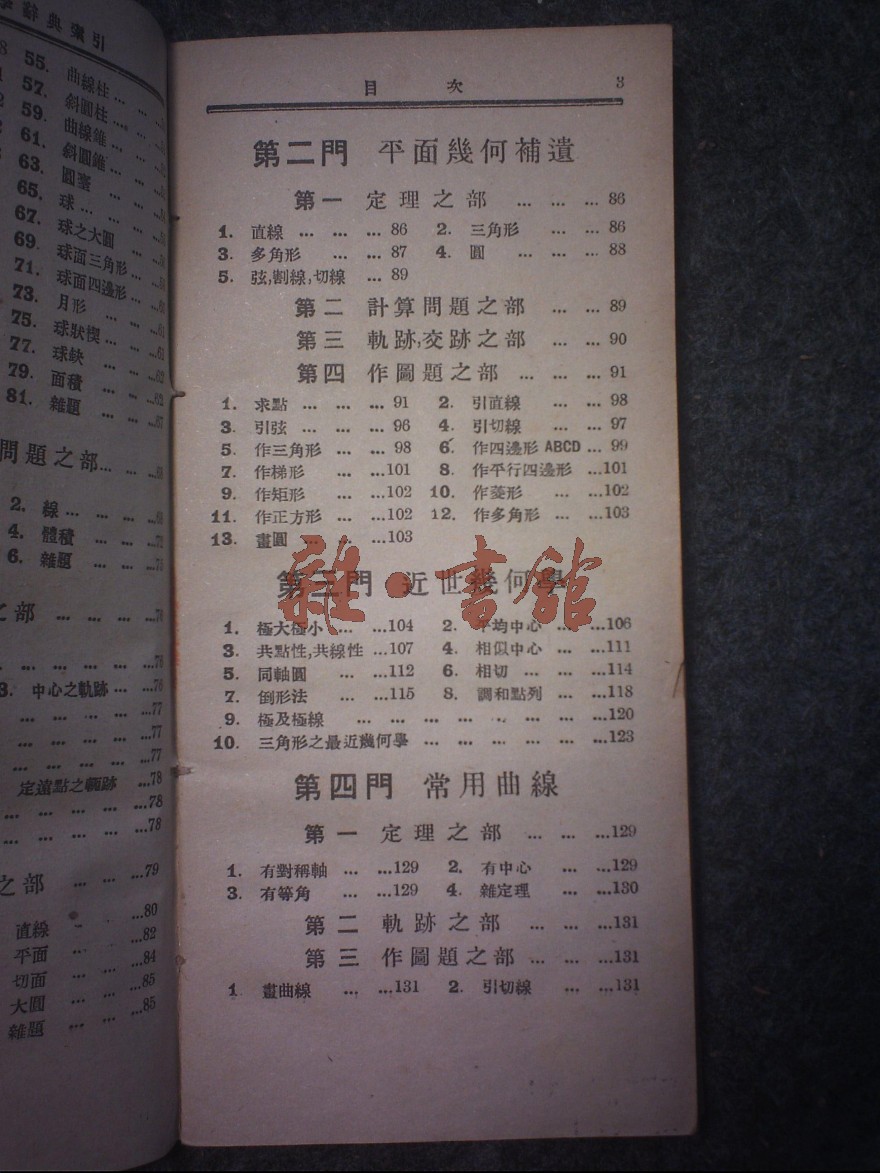 學辭典索引
55. 曲線柱 … …
57. 斜圓柱 … …
59. 曲線錐 … …
61. 斜圓錐 … …
63. 圓臺 … …
65. 球 … …
67. 球之大圓 …
69. 球面三角形 …
71. 球面四邊形 …
73. 月形 … …
75. 球狀楔 …
77. 球缺 … …
79. 面積 … …
81. 雜題 … …
問題之部 … …
2. 線 … … …
4. 體積 … …
6. 雜題 … …
之部 … … …
3. 中心之軌跡 … …76
… … … …77
… … … …77
… … … …77
定遠點之軌跡 …78
… … … …78
… … … …78
之部 … … …79
直線 … …80
平面 … … …82
切面 … … …84
大圓 … … …85
雜題 … … …85
目 次 3
第二門 平面幾何補遺
第一 定理之部 … … … 86
1. 直線 … … … 86 2. 三角形 … … 86
3. 多角形 … … 87 4. 圓 … … 88
5. 弦,割線,切線 … 89
第二 計算問題之部 … … 89
第三 軌跡,交跡之部 … … 90
第四 作圖題之部 … … … 91
1. 求點 … … … 91 2. 引直線 … … 98
3. 引弦 … … … 96 4. 引切線 … … 97
5. 作三角形 … … 98 6. 作四邊形 ABCD … 99
7. 作梯形 … …101 8. 作平行四邊形 …101
9. 作矩形 … …102 10. 作菱形 … …102
11. 作正方形 … …102 12. 作多角形 … …103
13. 畫圓 … … …103
雜·書館
第三門 近世幾何學
1. 極大極小 … …104 2. 平均中心 … …106
3. 共點性,共線性 …107 4. 相似中心 … …111
5. 同軸圓 … …112 6. 相切 … … …114
7. 倒形法 … …115 8. 調和點列 … …118
9. 極及極線 … … … … … … … …120
10. 三角形之最近幾何學 … … … … … …123
第四門 常用曲線
第一 定理之部 … … …129
1. 有對稱軸 … …129 2. 有中心 … …129
3. 有等角 … …129 4. 雜定理 … …130
第二 軌跡之部 … … …131
第三 作圖題之部 … … …131
1 畫曲線 … …131 2. 引切線 … …131